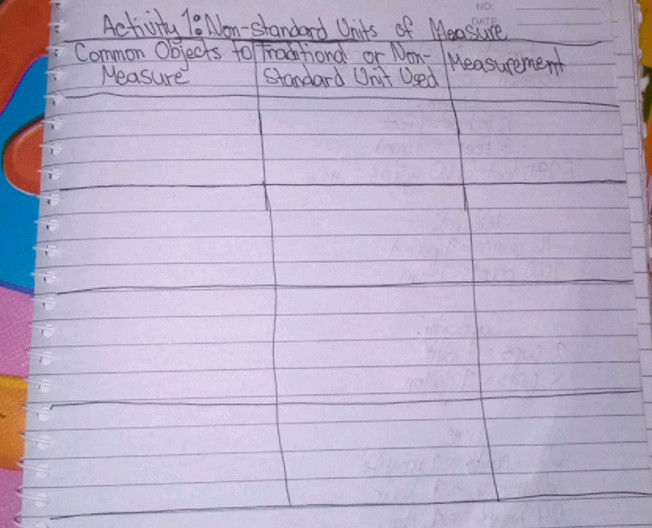 NO:
DATE
Activity 1: Non-Standard Units of Measure
Common Objects to Measure
Traditional or Non-Standard Unit Used
Measurement